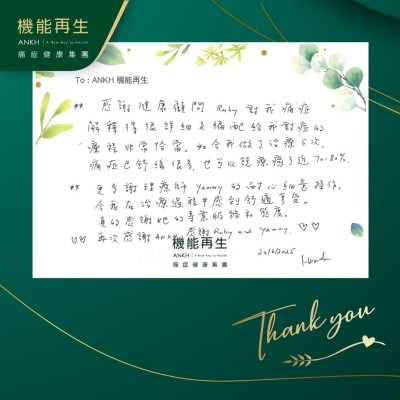 機能再生
ANKH | A New Key to Health
痛症健康集團
To : ANKH 機能再生
** 感謝健康顧問 Ruby 對我痛症
解釋得很詳細及編配給我對症的
療程非常恰當。如今我做了治療5次，
痛症已舒緩很多，也可以說療癒了近 70-80%.
** 更多謝理療師 Yammy 的耐心細意操作，
令我在治療過程中感到舒適享受。
真的感謝她的專業服務和態度。
♡♡ 再次感謝 Ankh, 感謝 Ruby and Yammy. ♡♡
機能再生
ANKH | A New Key to Health
痛症健康集團
20/6/2025
Thank you